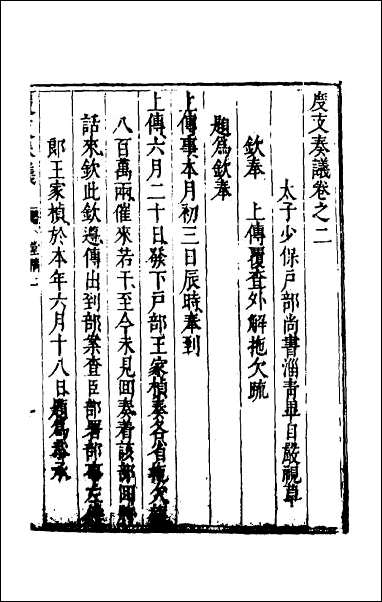 度支奏議卷之二
太子少保戶部尚書淄青畢自嚴視草
欽奉　上傳覆查外解拖欠疏
題爲欽奉
上傳事本月初三日辰時奉到
上傳六月二十日發下戶部王家楨奏各省拖欠
八百萬兩催來若干至今未見回奏着該部回將
話來欽此欽遵傳出到部案查臣部署部事左侍
郎王家楨於本年六月十八日題爲
度支奏議
堂稿二